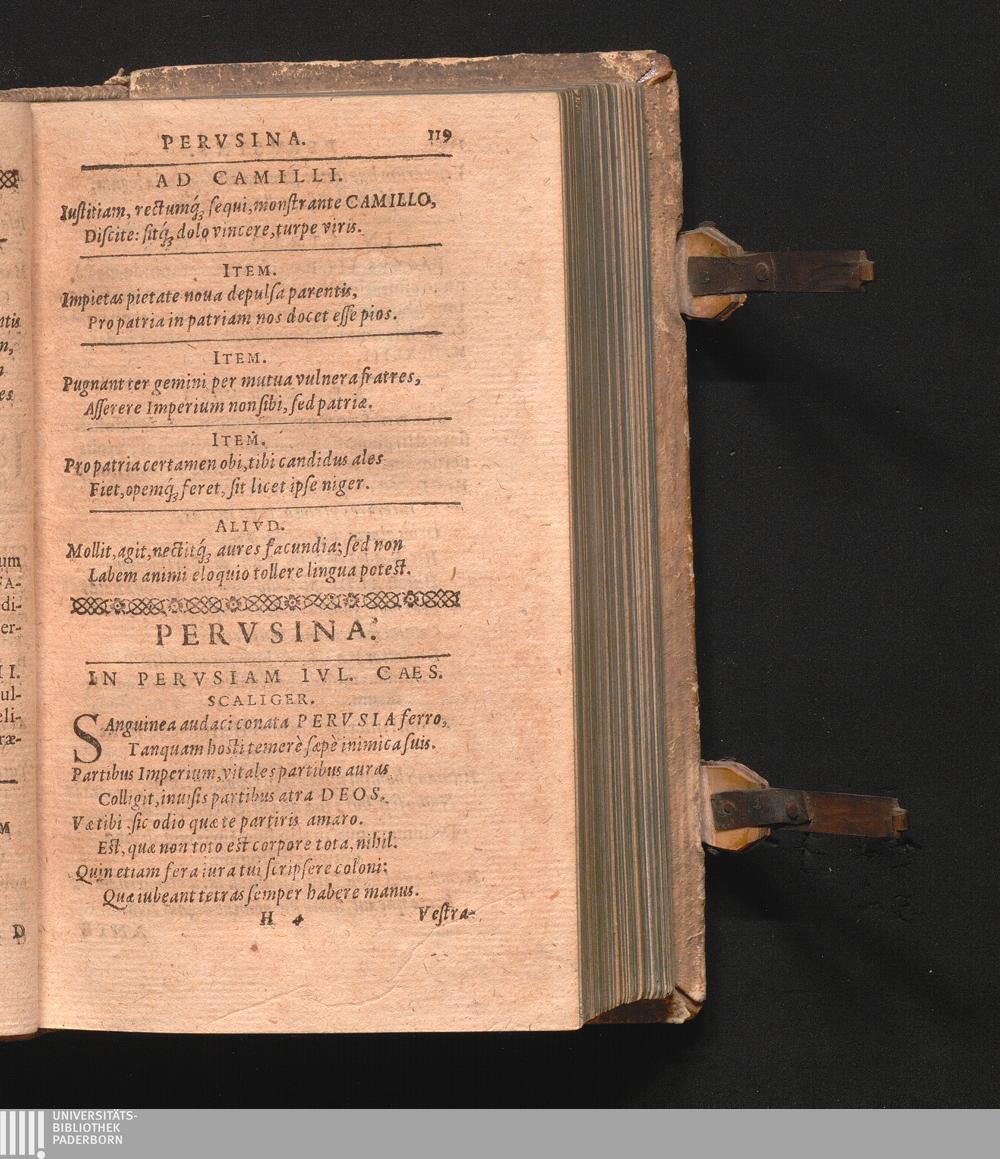 PERVSINA. 119
AD CAMILLI.
Iuſtitiam, rectumq́ꝫ ſequi, monſtrante CAMILLO,
Diſcite: ſitq́ꝫ dolo vincere, turpe viris.
ITEM.
Impietas pietate noua depulſa parentis,
Pro patria in patriam nos docet eſſe pios.
ITEM.
Pugnant ter gemini per mutua vulnera fratres,
Aſſerere Imperium non ſibi, ſed patriæ.
ITEM.
Pro patria certamen obi, tibi candidus ales
Fiet, opemq́ꝫ feret, ſit licet ipſe niger.
ALIVD.
Mollit, agit, nectitq́ꝫ aures facundia; ſed non
Labem animi eloquio tollere lingua poteſt.
PERVSINA.
IN PERVSIAM IVL. CAES.
SCALIGER.
SAnguinea audaci conata PERVSIA ferro,
Tanquam hoſti temerè ſæpè inimica ſuis.
Partibus Imperium, vitales partibus auras
Colligit, inuiſis partibus atra DEOS.
Væ tibi ſic odio quæ te partiris amaro.
Eſt, quæ non toto eſt corpore tota, nihil.
Quin etiam fera iura tui ſcripſere coloni:
Quæ iubeant tetras ſemper habere manus.
H 4 Veſtra-
ntis
n,
es
um
FA-
di-
er-
II.
ul-
eli-
ræ-
M
D
UNIVERSITÄTS-
BIBLIOTHEK
PADERBORN